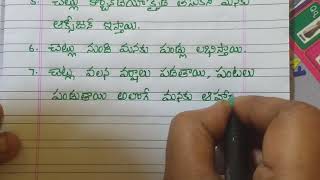 5. చెట్లు కార్బన్‌డయాక్సైడ్ తీసుకొని మనకు
ఆక్సిజన్ ఇస్తాయి.
6. చెట్లు నుండి మనకు పండ్లు లభిస్తాయి.
7. చెట్ల వలన వర్షాలు పడతాయి. పంటలు
పండుతాయి అలాగే మనకు ఆహా